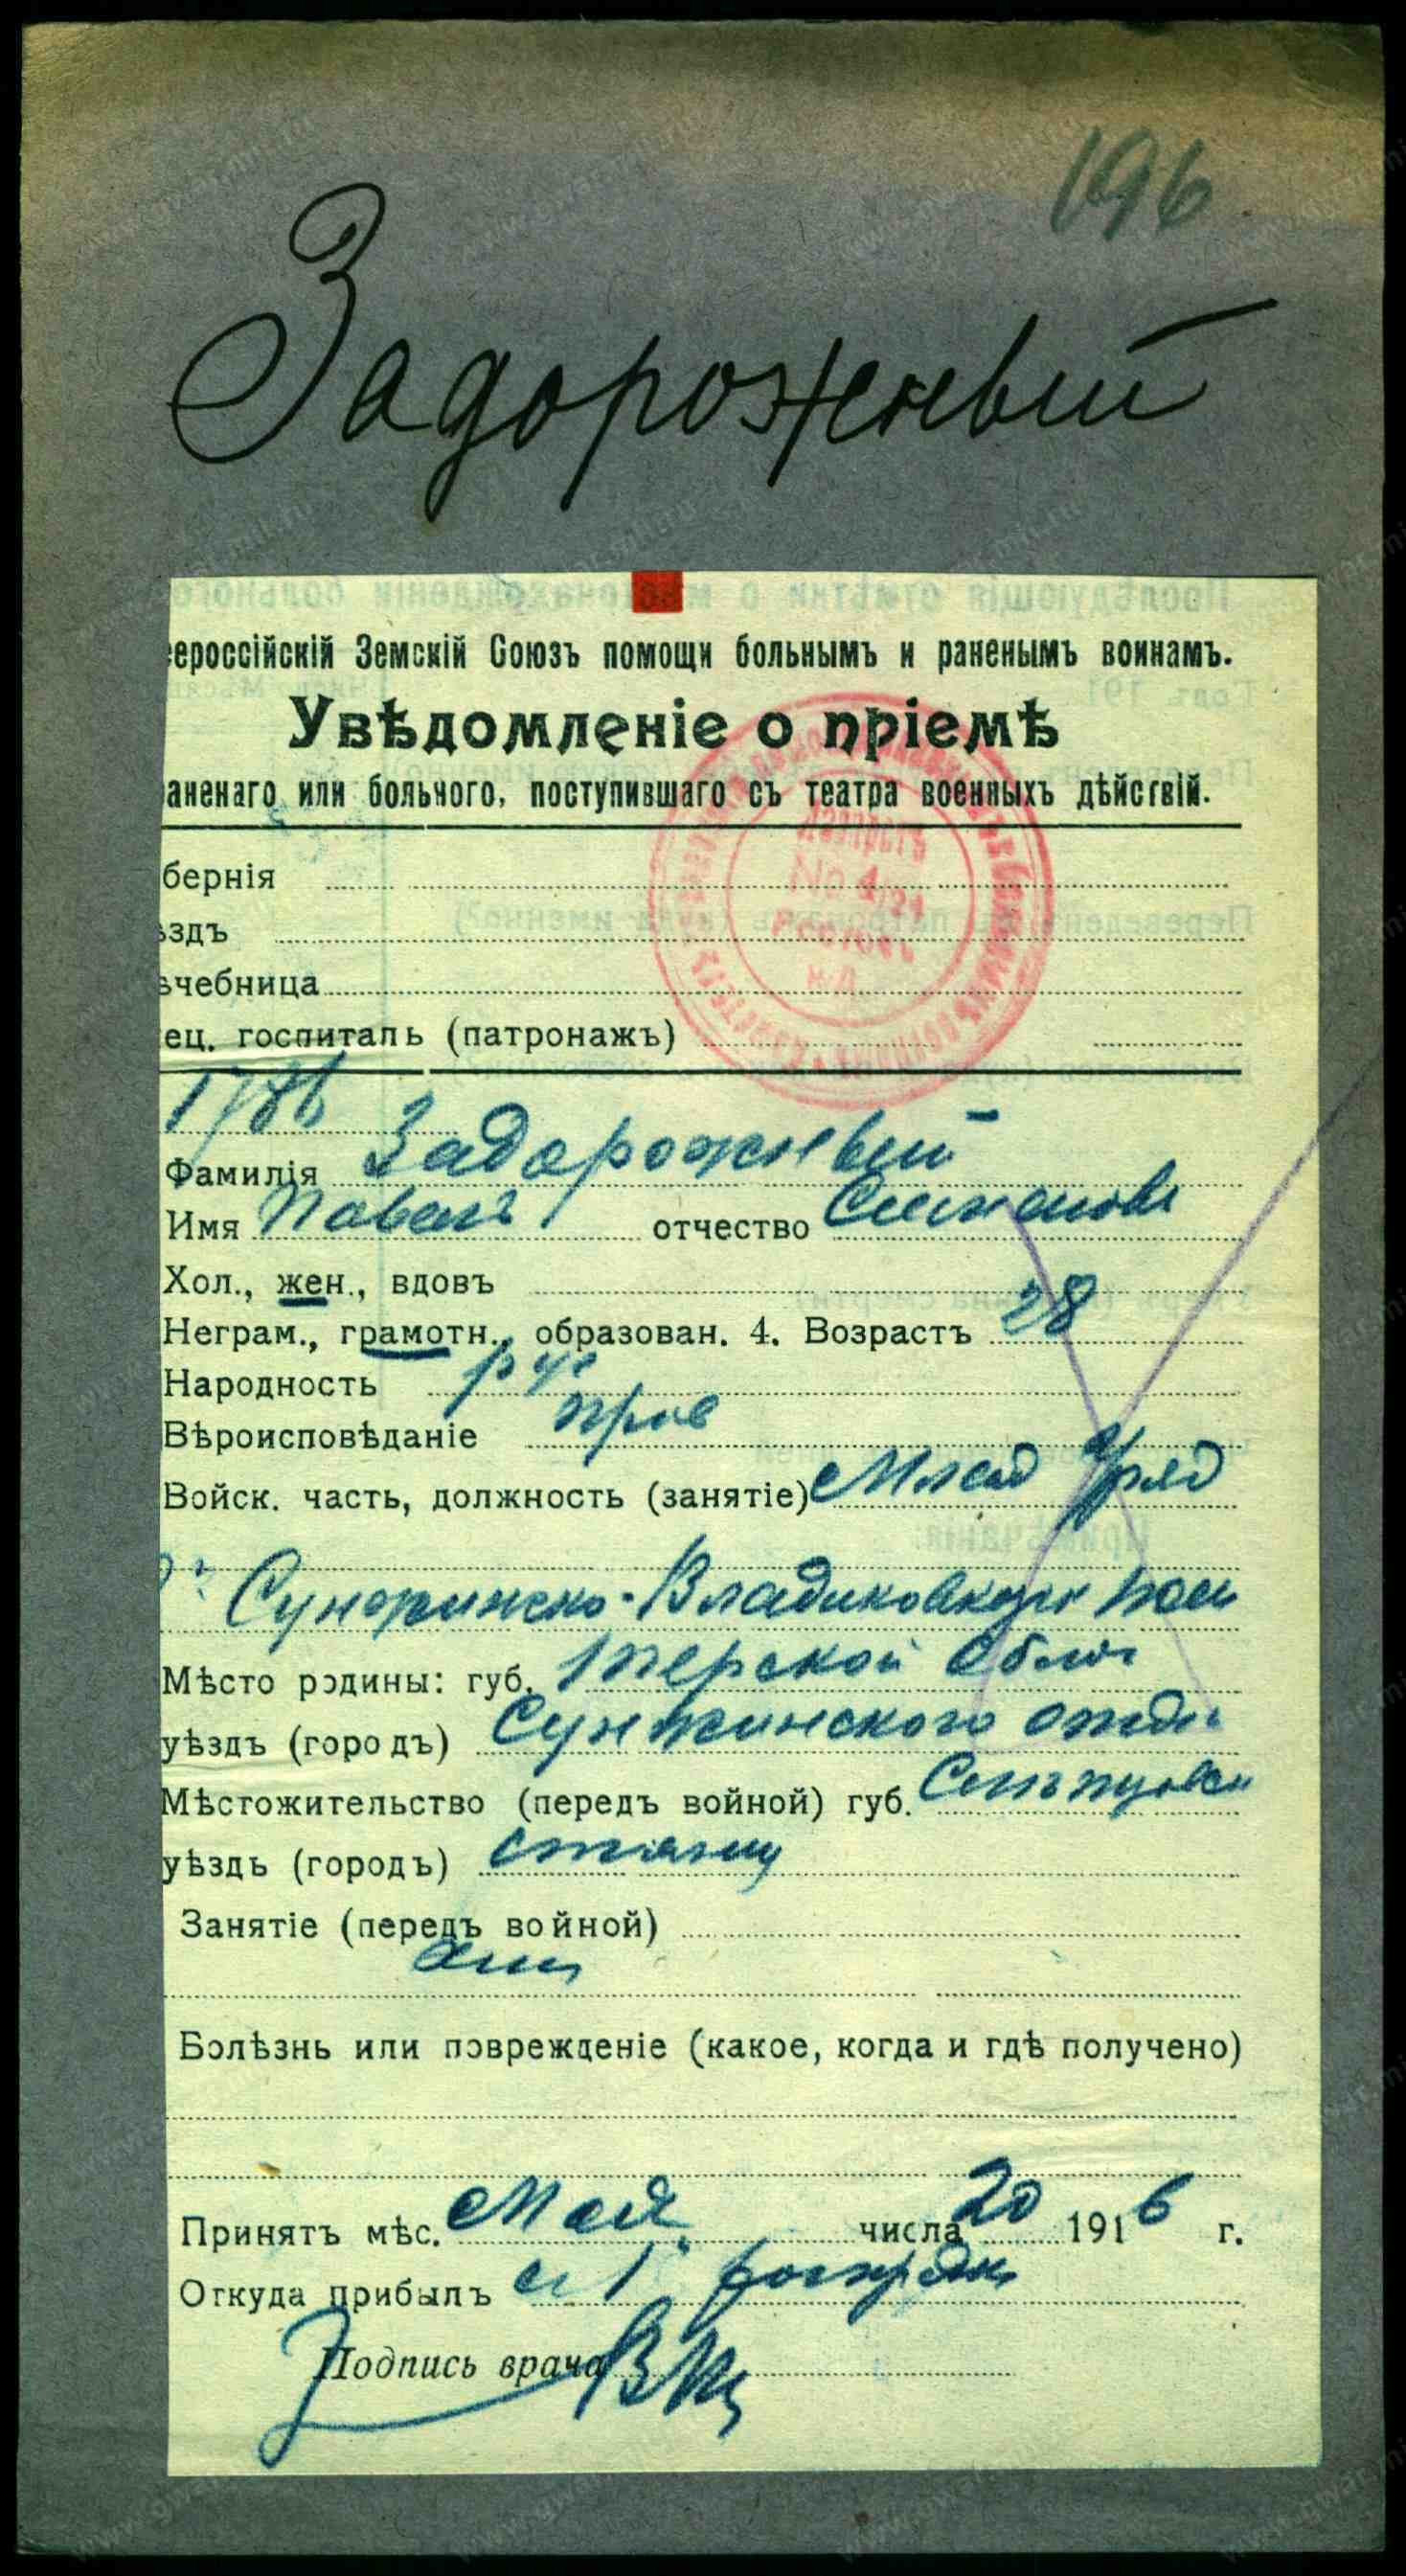 196
Задорожный
сероссійскій Земскій Союзъ помощи больнымъ и раненымъ воинамъ.
Увѣдомленіе о пріемѣ
раненаго или больного, поступившаго съ театра военныхъ дѣйствій.
бернія
ѣздъ
ѣчебница
ец. госпиталь (патронажъ)
Лазаретъ
No 4
Фамилія Задорожный
Имя Павелъ отчество
Хол., жен., вдовъ
Неграм., грамотн., образован. 4. Возрастъ 28
Народность рус
Вѣроисповѣданіе прав
Войск. часть, должность (занятіе) Млад Уряд
Сунженско-Владиковказск
Мѣсто родины: губ. Терской Облас
уѣздъ (городъ) Сунженского отдѣл
Мѣстожительство (передъ войной) губ.
уѣздъ (городъ) станиц
Занятіе (передъ войной)
Болѣзнь или поврежденіе (какое, когда и гдѣ получено)
Принятъ мѣс. Мая числа 20 1916 г.
Откуда прибылъ
Подпись врача